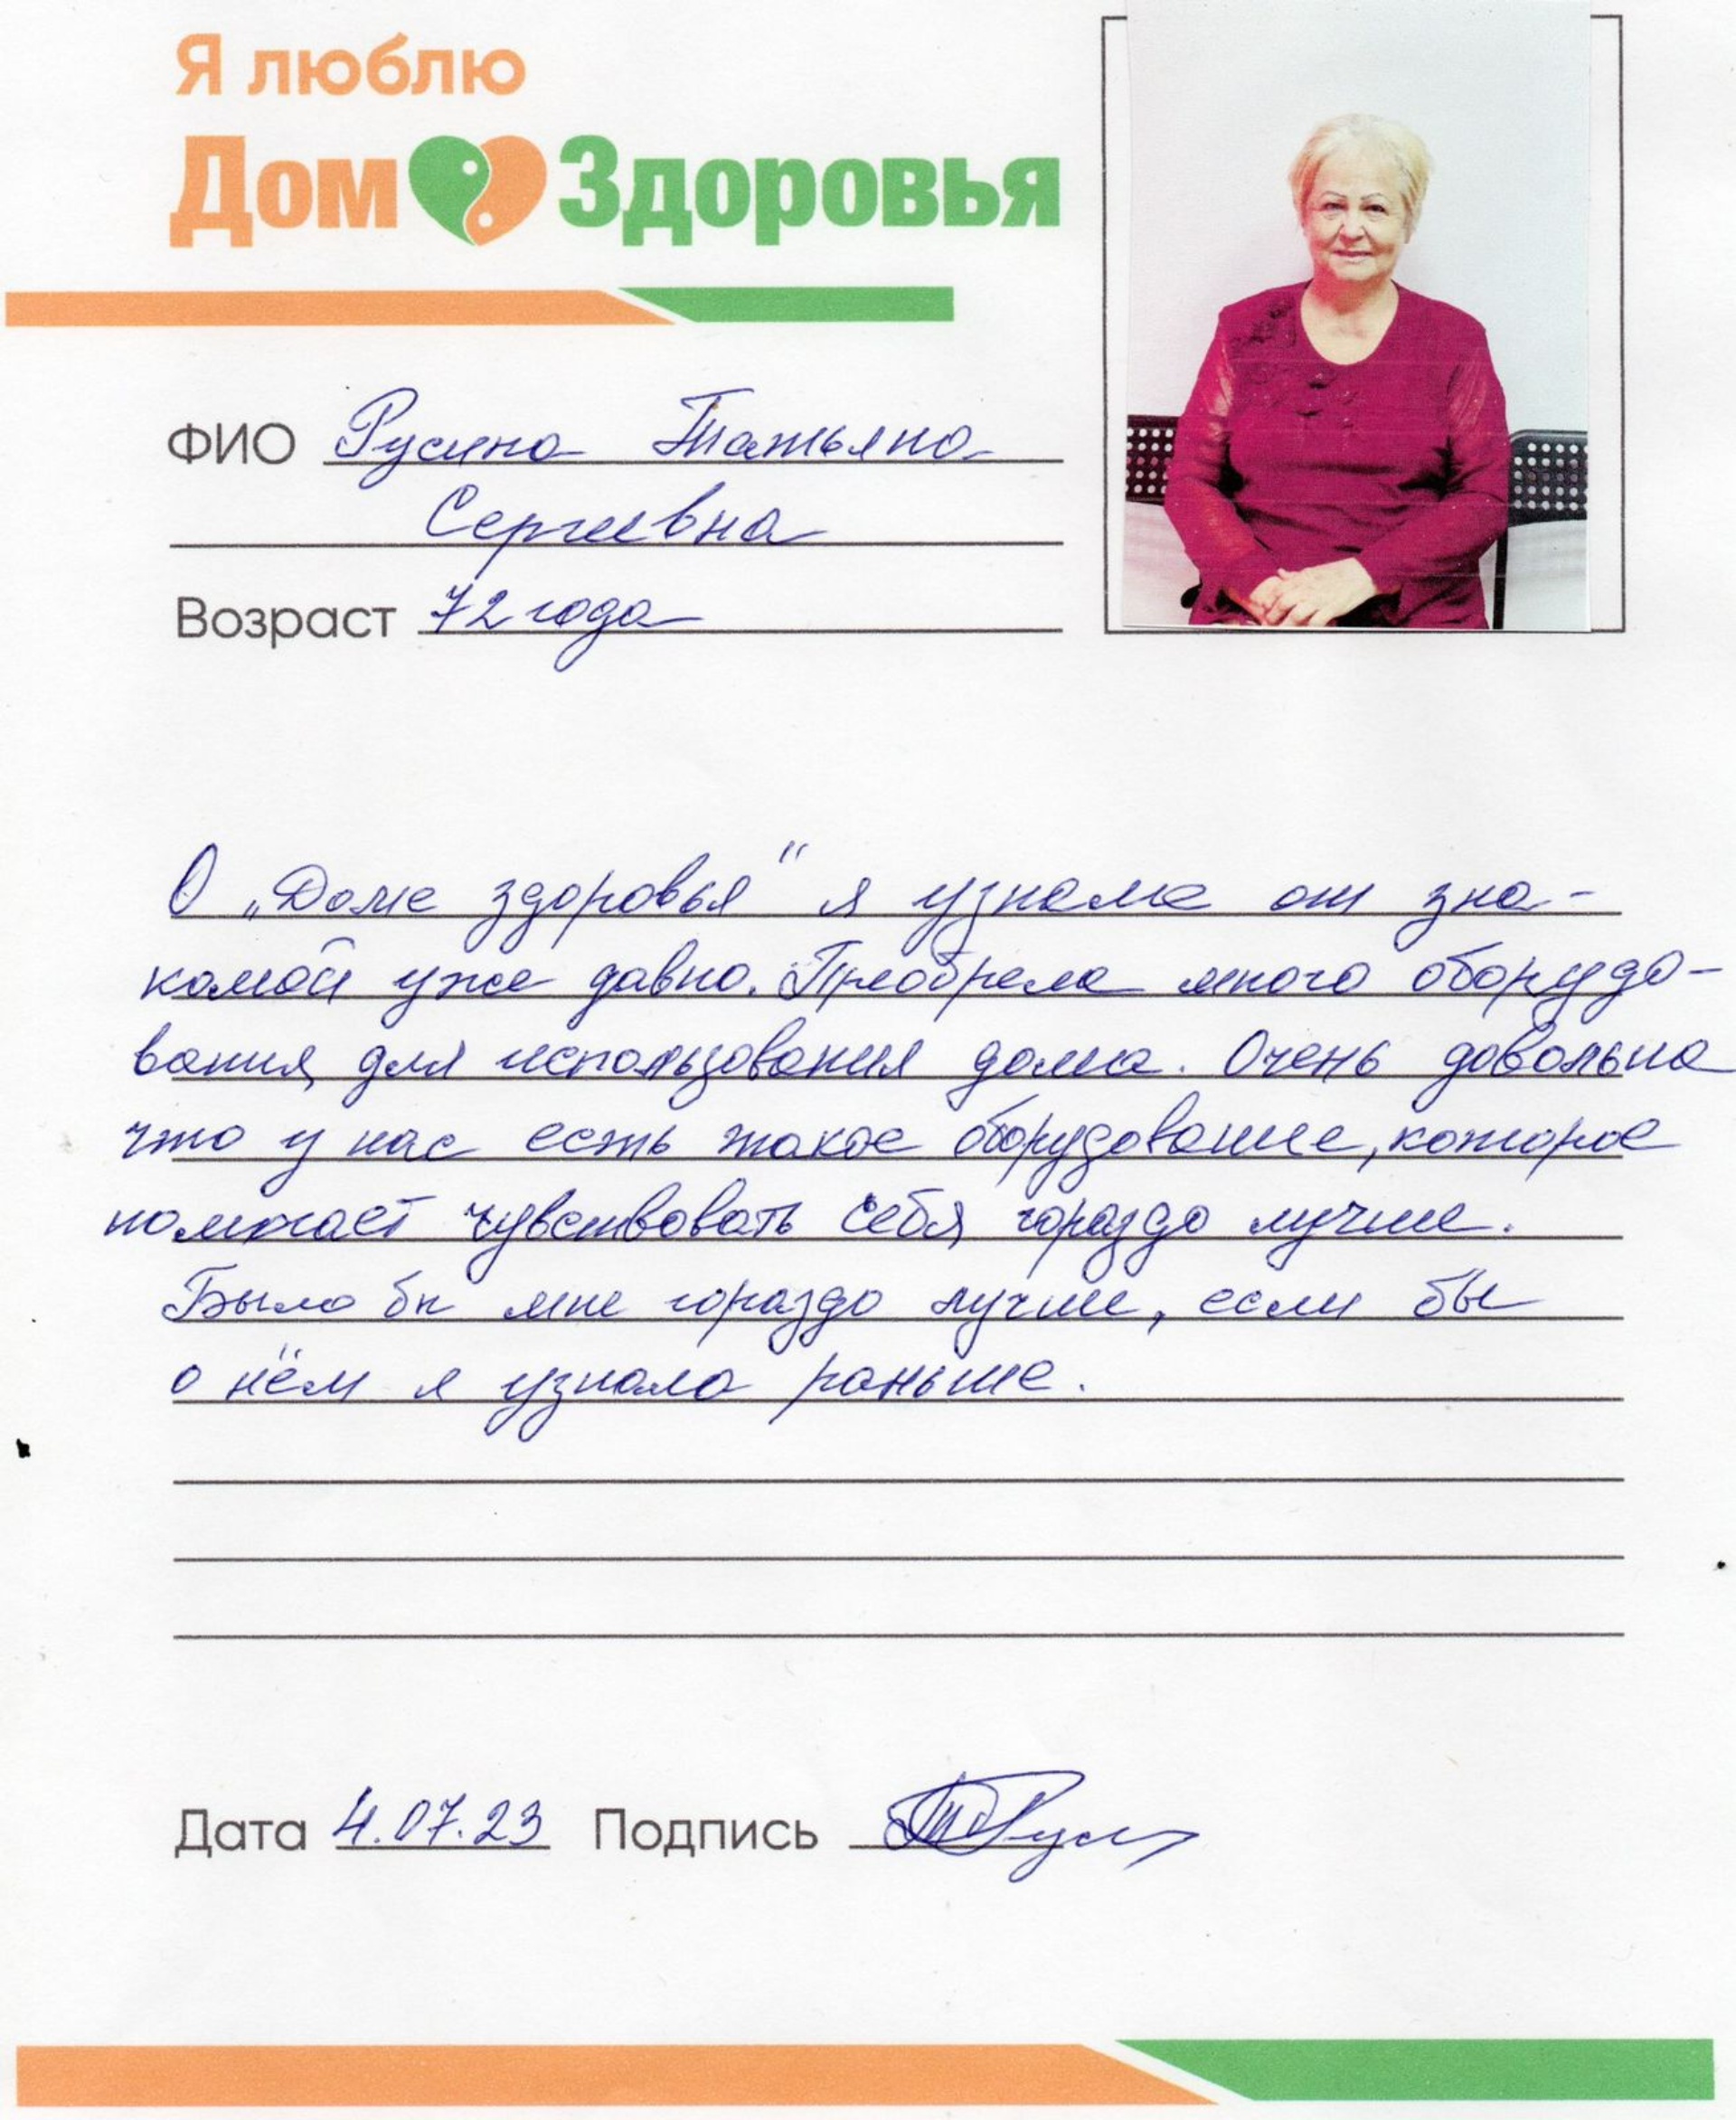 Я люблю
Дом Здоровья
ФИО Русина Татьяна
Сергеевна
Возраст 72 года
О „Доме здоровья" я узнала от зна-
комой уже давно. Приобрела много оборудо-
вания для использования дома. Очень довольна
что у нас есть такое оборудование, которое
помогает чувствовать себя гораздо лучше.
Было бы мне гораздо лучше, если бы
о нём я узнала раньше.
Дата 4.07.23 Подпись